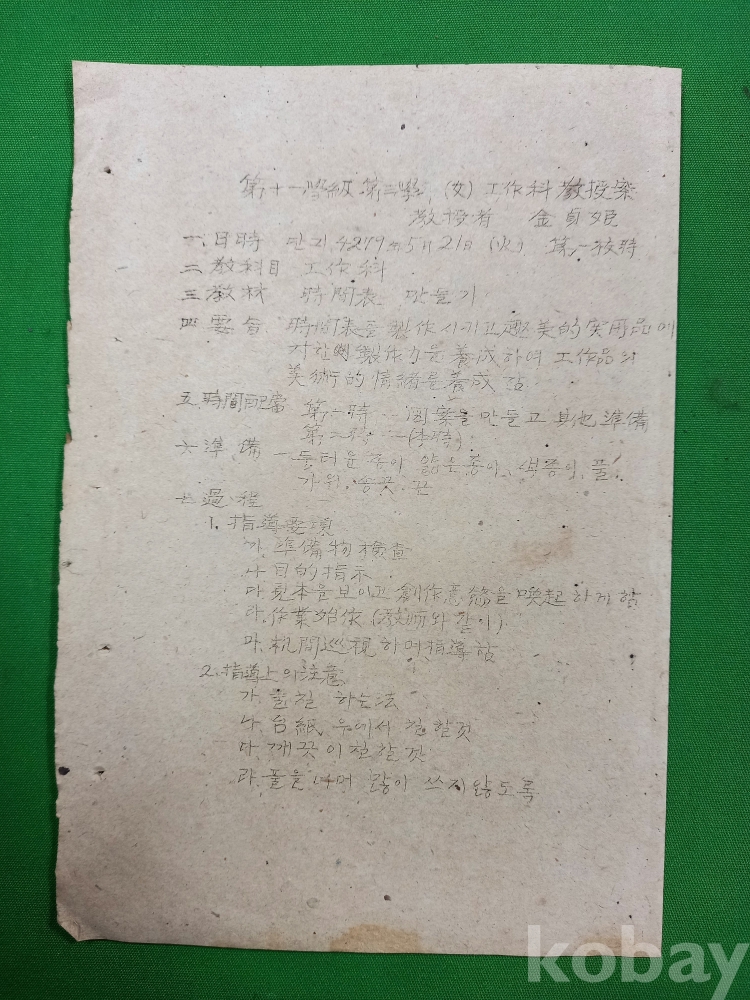 第十一學級 第三學 (女) 工作科 敎授案
敎授者 金貞姬
一. 日時 단기 4279年 5月 21日 (火) 第一校時
二 敎科目 工作科
三 敎材 時間表 만들기
四 要旨 時間表를 製作시키고 趣美的 実用品에
製作力을 養成하여 工作品의
美術的 情緖를 養成 함
五 時間配當 第一時 --- 図案을 만들고 其他 準備
第二時 --- (本時)
六 準備 - 둗터운 종이 얇은 종이, 색종이, 풀
가위. 송곳. 끈
七 過程
1. 指導要項
가. 準備物 檢查
나 目的指示
다. 見本을 보이고 創作意慾을 喚起하게 함
라. 作業 (敎師와 같이)
마. 机間巡視하며 指導함
2. 指導上의 注意
가. 풀칠 하는 法
나. 台紙 우에서 칠 할것
다. 깨끗이 칠할 것
라. 풀을 너머 많이 쓰지 않도록
kobay